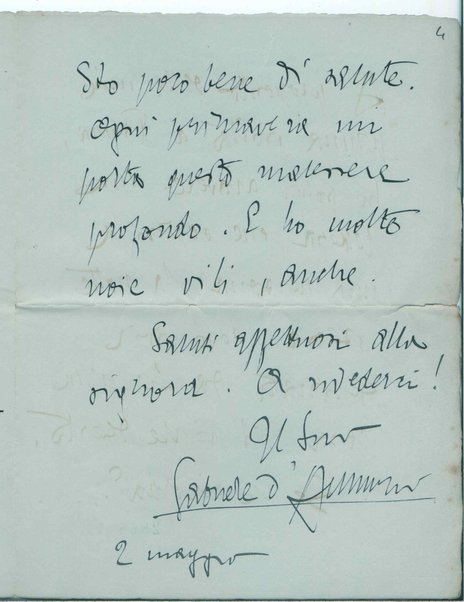 4
Sto poco bene di salute.
Ogni primavera mi
porta questo malessere
profondo. E ho molte
noie vili, anche.
Saluti affettuosi alla
signora. A rivederci!
Il Suo
Gabriele d'Annunzio
2 maggio